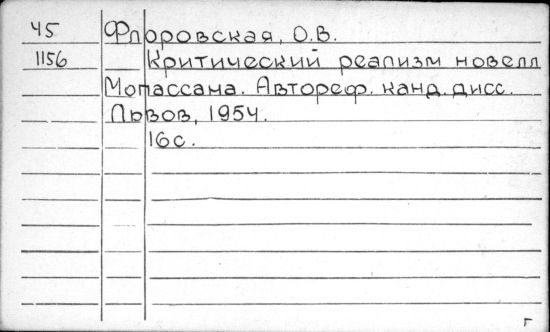 45 Флоровская, О.В.
1156 Критический реализм новелл
Мопассана. Автореф. канд. дисс.
Львов, 1954.
16с.
г